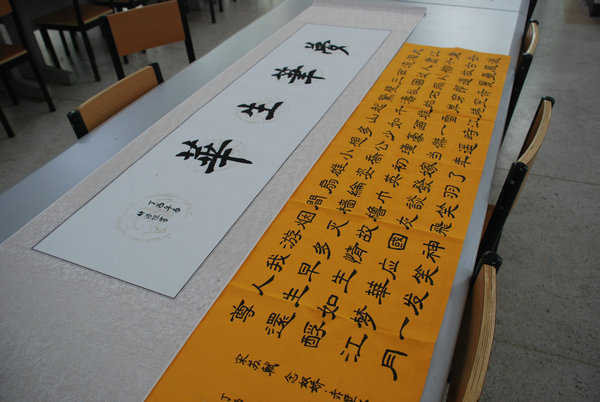 夢筆生華
丁亥年春
大江東去浪
淘盡千古風
流人物故壘
西邊人道是
三國周郎赤
壁乱石崩雲
驚濤裂岸捲
起千堆雪江
山如畫一時
多少豪傑遥
想公瑾當年
小喬初嫁了
雄姿英发羽
扇綸巾談笑
間墙櫓灰飛
烟灭故國神
游多情应笑
我早生華发
人生如梦一
尊還酹江月
宋苏軾 念奴娇·赤壁
丁亥